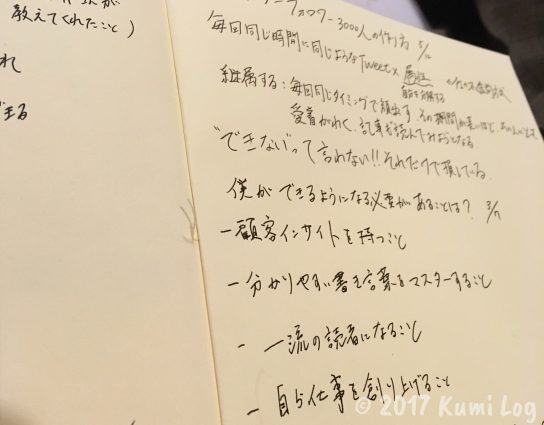 教えてくれたこと)
れ
フォロワー3000人の作り方
毎回同じ時間に同じようなTweet×
継続する:毎回同じタイミングで顔出す その期間が長いほど、
愛着がわく、記事も読んでみようとなる
"できない"って言わない!!それだけで損している。
僕ができるようになる必要があることは?
ー顧客インサイトを持つこと
ー分かりやすい書き言葉をマスターすること
ー一流の読者になること
ー自ら仕事を創り上げること
© 2017 Kumi Log